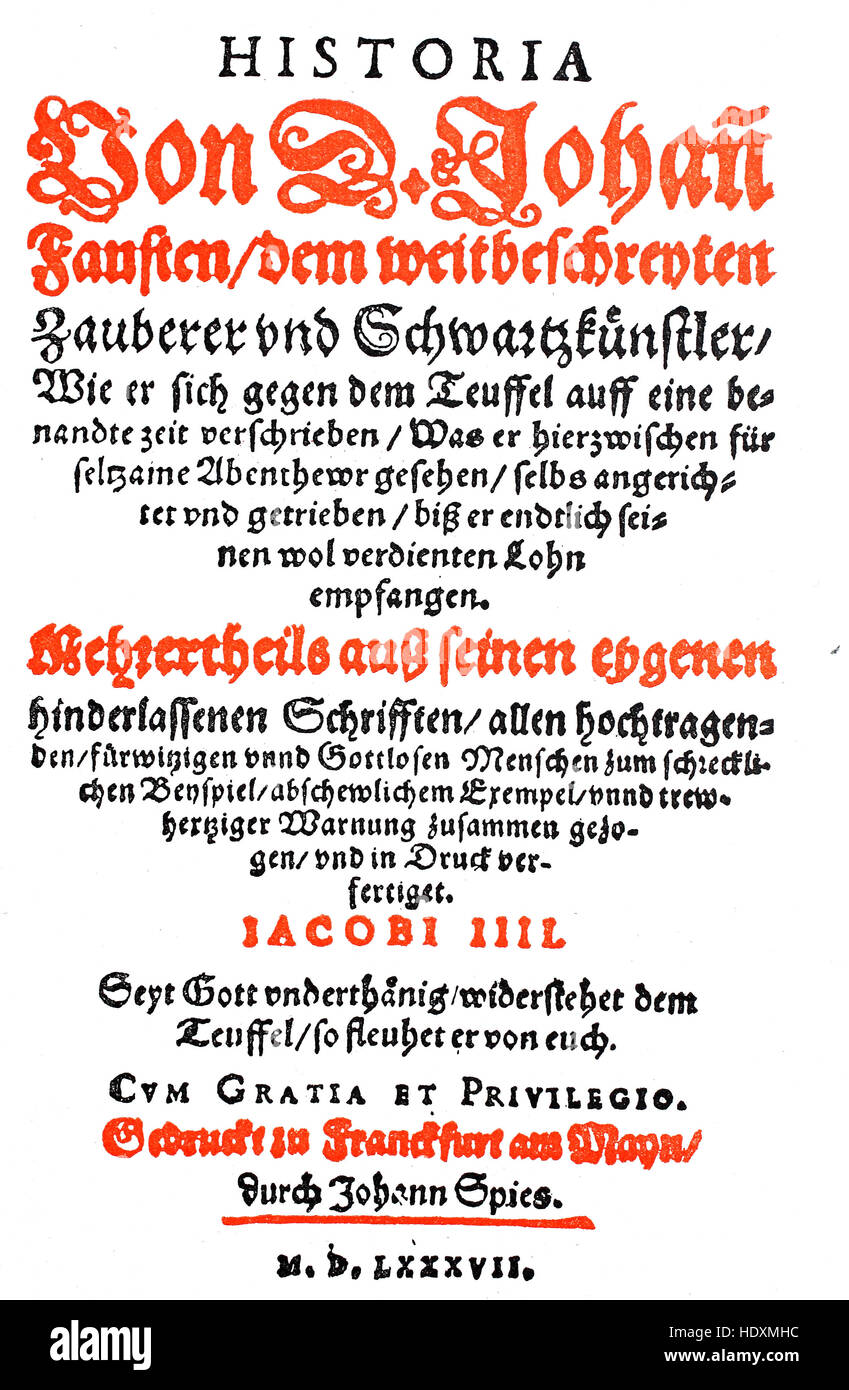 HISTORIA
Von D. Johañ
Fausten/dem weitbeschreyten
Zauberer vnd Schwartzkünstler/
Wie er sich gegen dem Teuffel auff eine be-
nandte zeit verschrieben/ Was er hierzwischen für
seltzame Abenthewr gesehen/ selbs angerich-
tet vnd getrieben/ biß er endtlich sei-
nen wol verdienten Lohn
empfangen.
Mehrertheils auß seinen eygenen
hinderlassenen Schrifften/ allen hochtragen-
den/fürwitzigen vnnd Gottlosen Menschen zum schreckli-
chen Beyspiel/abschewlichem Exempel/vnnd trew-
hertziger Warnung zusammen gezo-
gen/ vnd in Druck ver-
fertiget.
IACOBI IIII.
Seyt Gott vnderthänig/widerstehet dem
Teuffel/so fleuhet er von euch.
CVM GRATIA ET PRIVILEGIO.
Gedruckt zu Franckfurt am Mayn/
durch Johann Spies.
M. D. LXXXVII.
alamy stock photo
HDXMHC
www.alamy.com